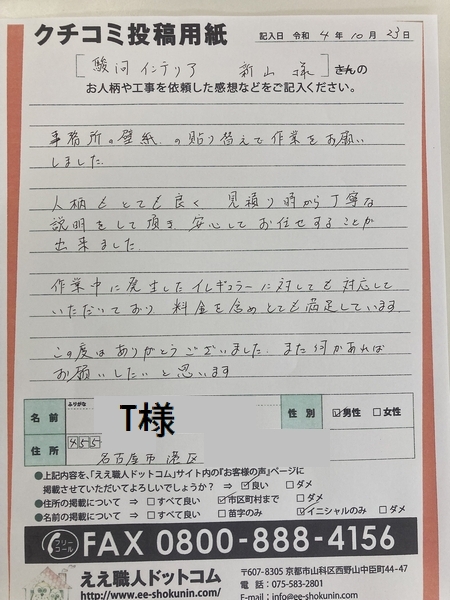 クチコミ投稿用紙
記入日 令和 4 年 10 月 23 日
[駿河インテリア 新山 様]さんの
お人柄や工事を依頼した感想などをご記入ください。
事務所の壁紙の貼り替えで作業をお願い
しました.
人柄もとても良く 見積り時から丁寧な
説明をして頂き 安心してお任せすることが
出来ました.
作業中に発生したイレギュラーに対しても対応して
いただいており 料金を含めとても満足しています.
この度はありがとうございました. また何かあれば
お願いしたいと思います
ふりがな
名前 T様 性別 ☑男性 □女性
住所 455
名古屋市港区
●上記内容を、「ええ職人ドットコム」サイト内の『お客様の声』ページに
掲載させていただいてよろしいでしょうか? ⇒ ☑良い □ダメ
●住所の掲載について ⇒ □すべて良い ☑市区町村まで □ダメ
●名前の掲載について ⇒ □すべて良い □苗字のみ ☑イニシャルのみ □ダメ
フリーコール FAX 0800-888-4156
ええ職人ドットコム
http://www.ee-shokunin.com/
〒607-8305 京都市山科区西野山中臣町44-47
電話:075-583-2801
E-mail:info@ee-shokunin.com